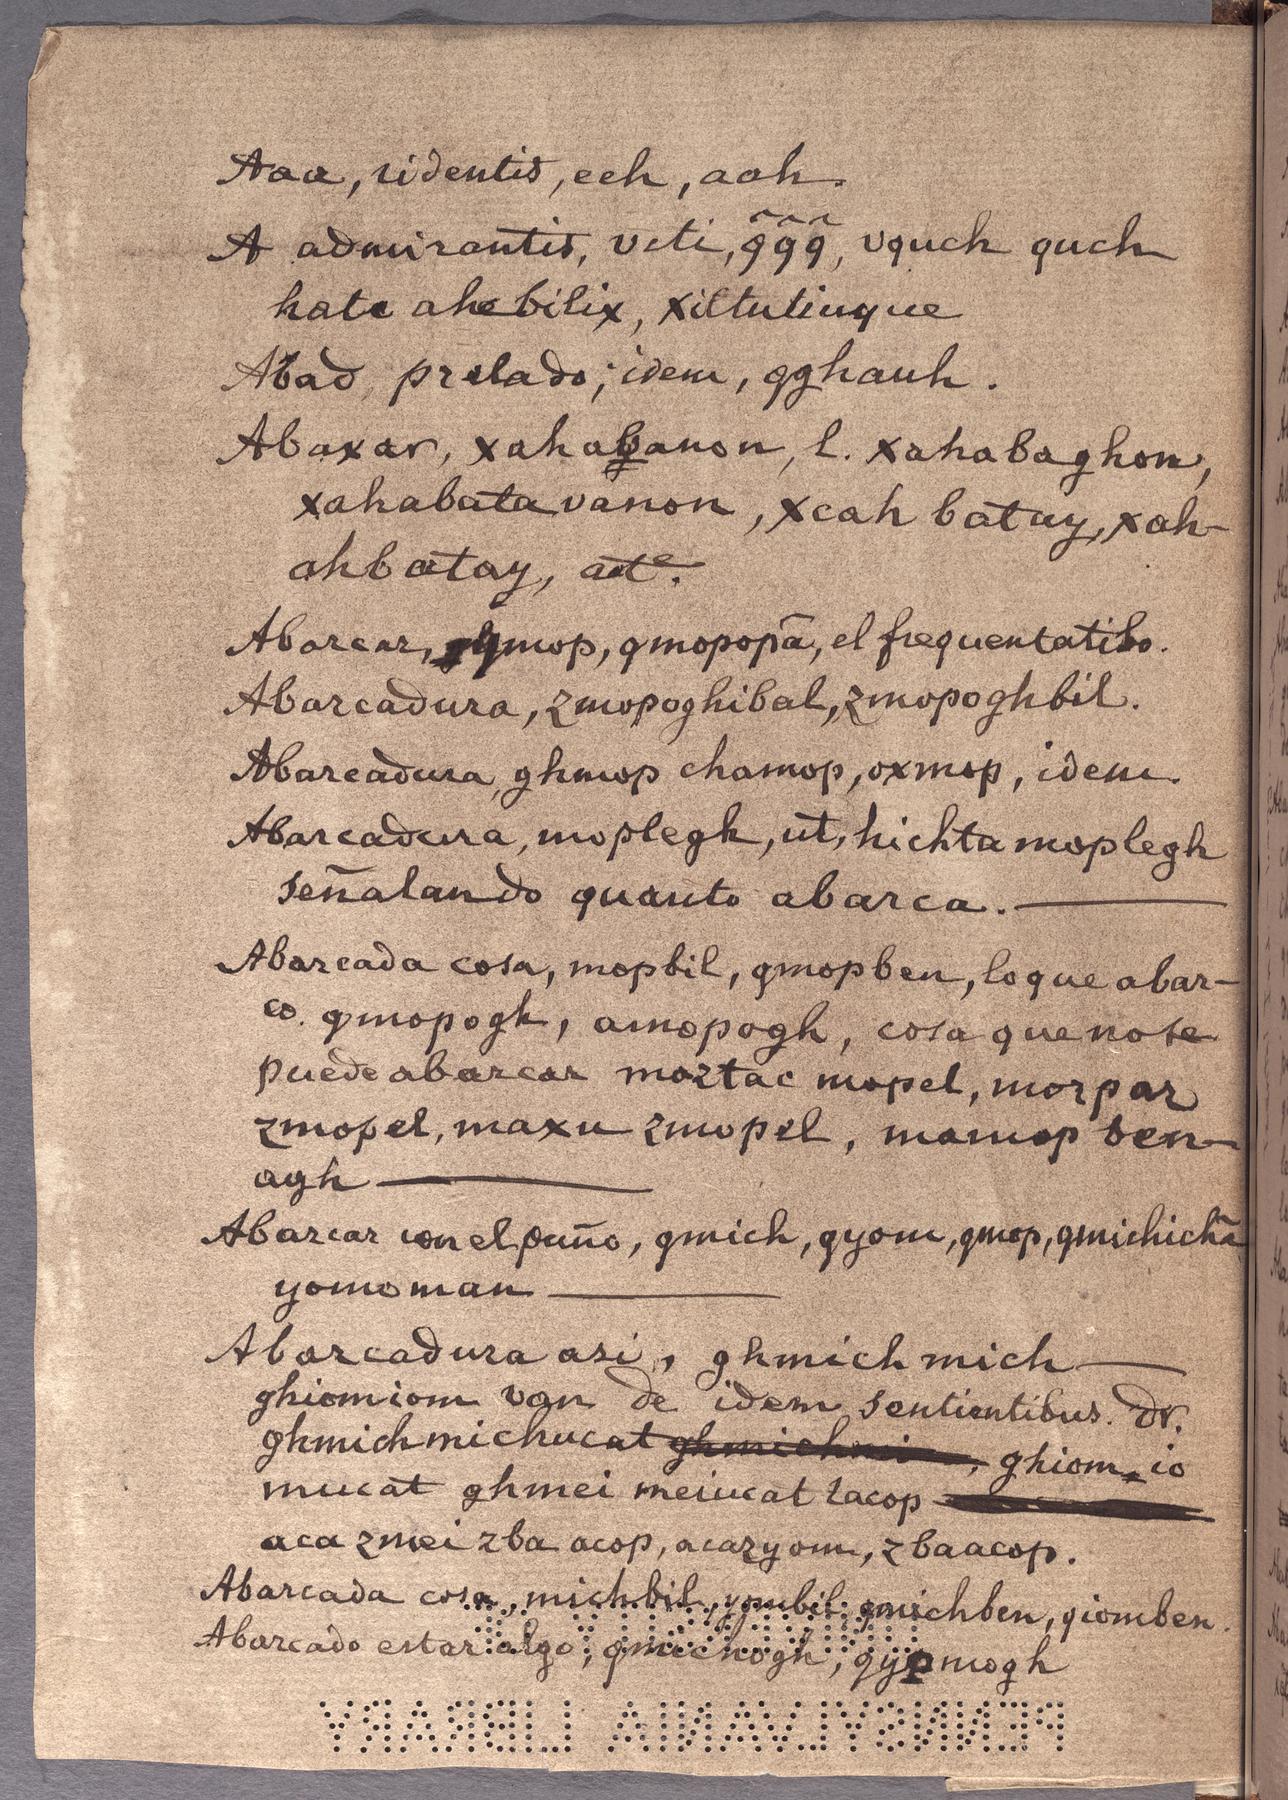 Aaa, ridentis, eeh, aah.
A admirantis, veti, q̑q̑q̑, vquch quch
hata ahebilix, xiltutiuque
Abad prelado; idem, qghauh.
Abaxar, xahabanon, l. xahabaghon,
xahabatavanon, xcah batuy, xah-
ahbatay, act.
Abarcar, qmop, qmopopã, el frequentatibo.
Abarcadura, zmopoghibal, zmopoghbil.
Abarcadura, ghmop chamop, oxmop, idem.
Abarcadura, moplegh, ut, hichta moplegh
señalando quanto abarca.
Abarcada cosa, mopbil, qmopben, lo que abar-
co. qmopogh, amopogh, cosa que no se
puede abarcar moztac mopel, morpar
zmopel, maxu zmopel, mamop ben-
agh
Abarcar con el puño, qmich, qyom, qmop, qmichichã
yomoman
Abarcadura asi, ghmich mich
ghiomiom van de idem sentientibus. Dr.
ghmichmichucat ghmichmi, ghiom-io
mucat ghmei meiucat lacop
aca zmei zba acop, acazyom, zbaacop.
Abarcada cosa, michbil, yombil, qmichben, qiomben.
Abarcado estar algo, qmichogh, qyomogh
PENNSYLVANIA LIBRARY